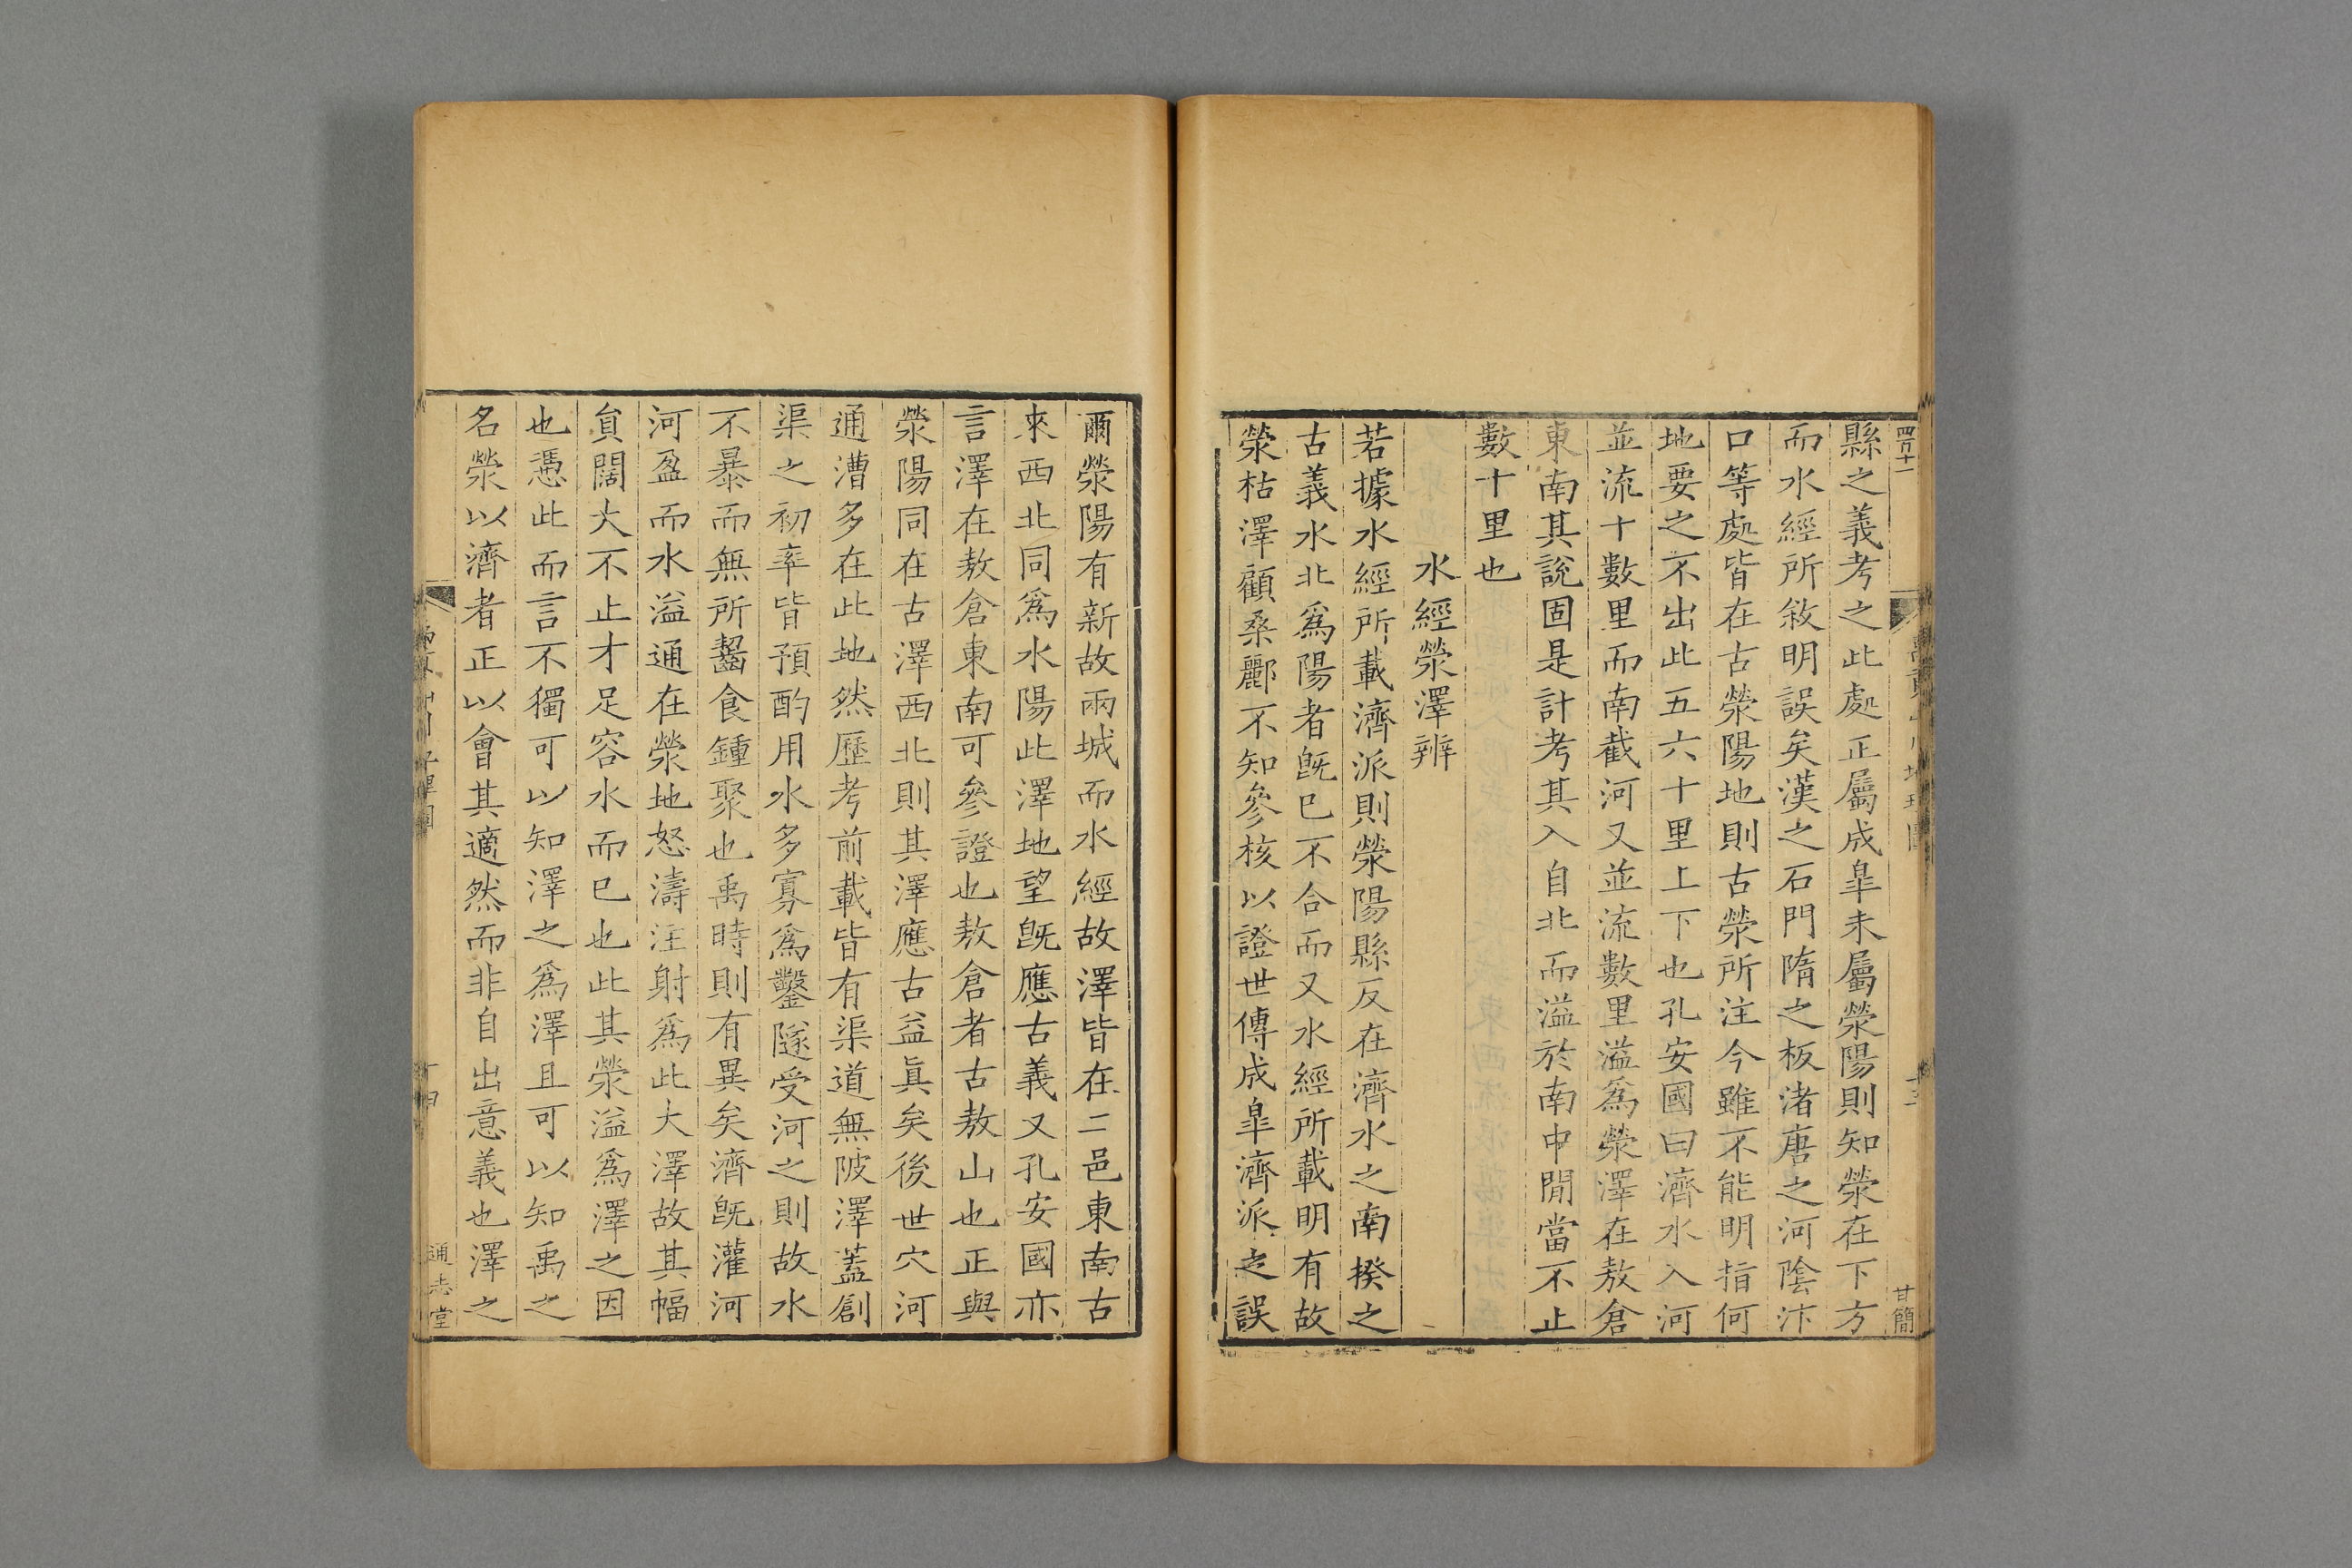 縣之義考之此處正屬成臯未屬滎陽則知滎在下方
而水經所敘明誤矣漢之石門隋之板渚唐之河陰汴
口等處皆在古滎陽地則古滎所注今雖不能明指何
地要之不出此五六十里上下也孔安國曰濟水入河
並流十數里而南截河又並流數里溢爲滎澤在敖倉
東南其說固是計考其入自北而溢於南中間當不止
數十里也
水經滎澤辨
若據水經所載濟派則滎陽縣反在濟水之南揆之
古義水北爲陽者旣已不合而又水經所載明有故
滎枯澤顧桑酈不知參核以證世傳成臯濟派之誤
爾滎陽有新故兩城而水經故澤皆在二邑東南古
來西北同爲水陽此澤地望旣應古義又孔安國亦
言澤在敖倉東南可參證也敖倉者古敖山也正與
滎陽同在古澤西北則其澤應古益眞矣後世穴河
通漕多在此地然歷考前載皆有渠道無陂澤蓋創
渠之初率皆預酌用水多寡爲鑿隧受河之則故水
不暴而無所齧食鍾聚也禹時則有異矣濟旣灌河
河盈而水溢通在滎地怒濤注射爲此大澤故其幅
員闊大不止才足容水而已也此其滎溢爲澤之因
也憑此而言不獨可以知澤之爲澤且可以知禹之
名滎以濟者正以會其適然而非自出意義也澤之
十四
通志堂
甘簡